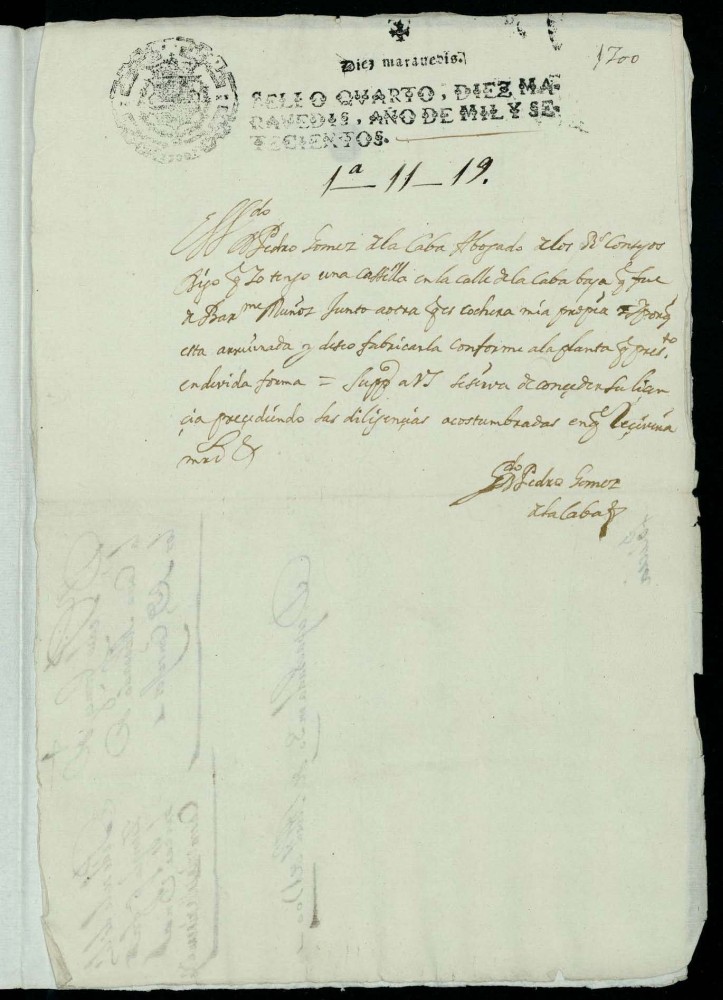 1700
Diez maravedis.
SELLO QVARTO, DIEZ MA-
RAVEDIS, AÑO DE MIL Y SE-
TECIENTOS.
1ª — 11 — 19.
Pedro Gomez de la Caba Abogado de los Rs Consejos
Digo q Yo tengo una cassilla en la calle de la Caba baja q fue
de Barme Muñoz Junto a otra q es cochera mia propia y porq
esta arruinada y deseo fabricarla conforme a la planta q presto
en devida forma = Suppco a VS se sirva de conçeder su liçen
çia preçediendo las diligençias acostumbradas en q Reçivira
mrd &
Ldo D Pedro Gomez
de la Caba